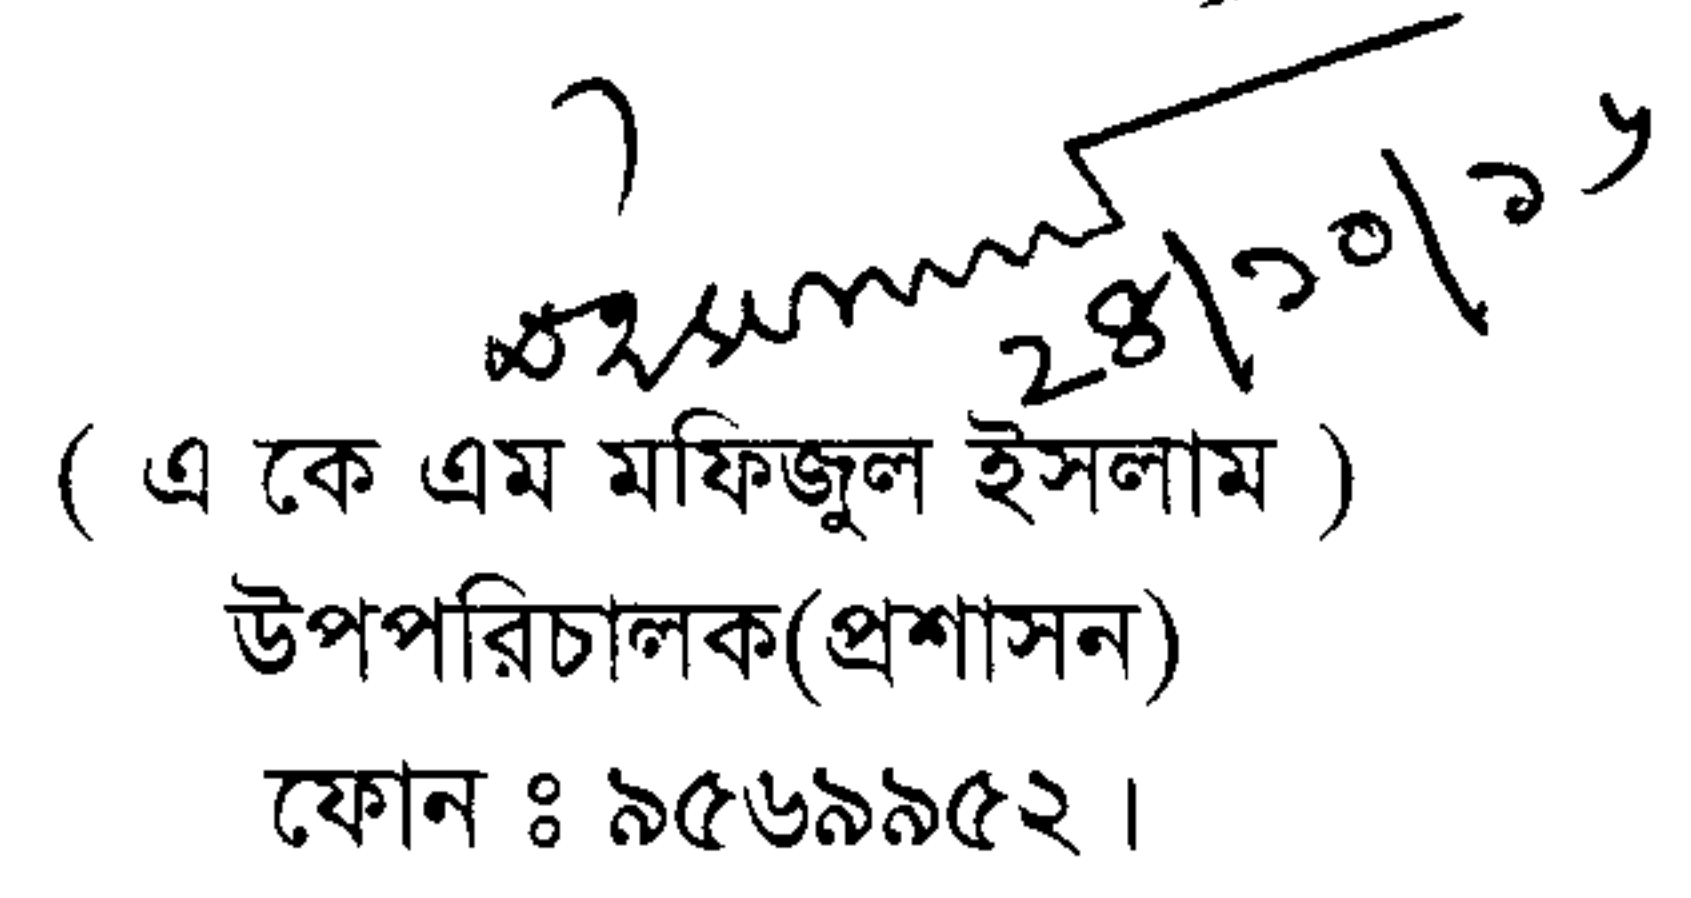 ২৪/১০/১৫
( এ কে এম মফিজুল ইসলাম )
উপপরিচালক(প্রশাসন)
ফোন ঃ ৯৫৬৯৯৫২ ।